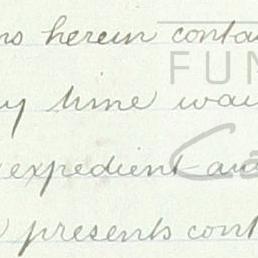 herein conta
FUN
time wai
expedient an
presents cont